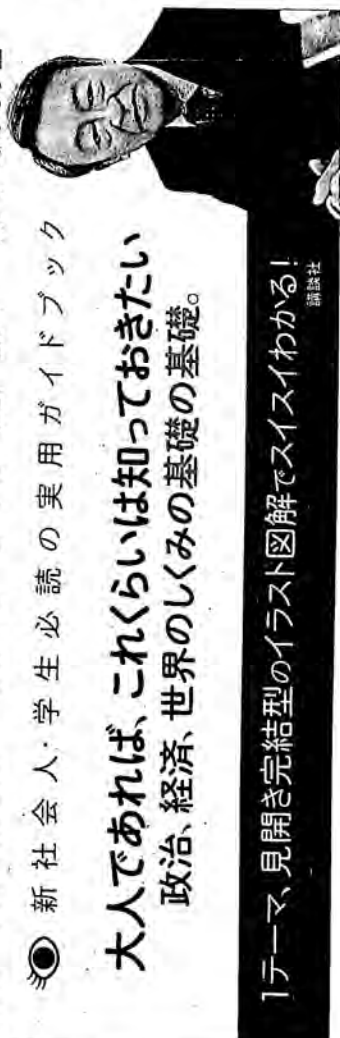 新社会人・学生必読の実用ガイドブック
大人であれば、これくらいは知っておきたい
政治、経済、世界のしくみの基礎の基礎。
1テーマ、見開き完結型のイラスト図解でスイスイわかる!
講談社